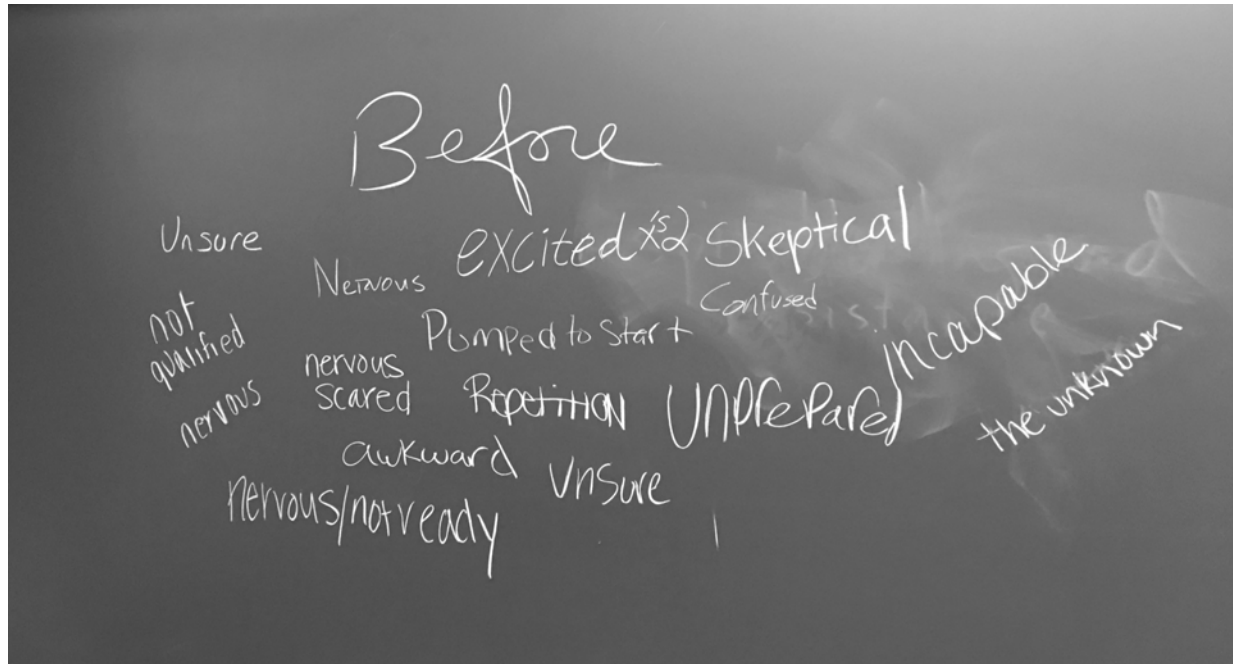 Before
Unsure
excited x's2
Skeptical
Nervous
Confused
not
qualified
Pumped to start
incapable
nervous
scared
nervous
Repetition
Unprepared
the unknown
awkward
Unsure
nervous/not ready